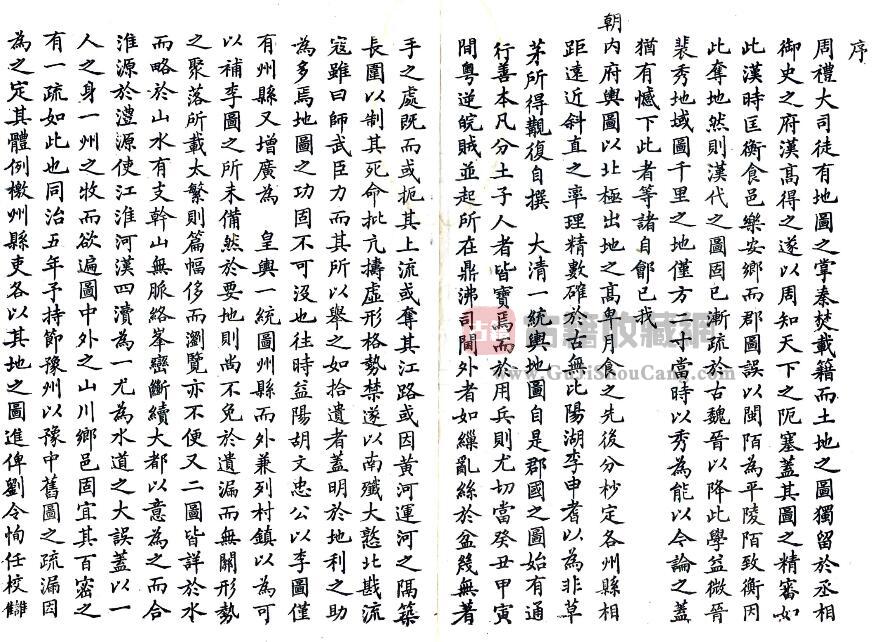 序
周禮大司徒有地圖之掌秦焚載籍而土地之圖獨留於丞相
御史之府漢高得之遂以周知天下之阨塞蓋其圖之精審如
此漢時匡衡食邑樂安鄉而郡圖誤以閩陌為平陵陌致衡因
此奪地然則漢代之圖固已漸疏於古魏晉以降此學益微晉
裴秀地域圖千里之地僅方二寸當時以秀為能以今論之蓋
猶有憾下此者等諸自鄶已我
朝內府輿圖以北極出地之高卑月食之先後分杪定各州縣相
距遠近斜直之率理精數確於古無比陽湖李申耆以為非草
茅所得觀復自撰 大清一統輿地圖自是郡國之圖始有通
行善本凡分土子人者皆寶焉而於用兵則尤切當癸丑甲寅
間粵逆皖賊並起所在鼎沸司閫外者如繅亂絲於盆幾無著
手之處既而或扼其上流或奪其江路或因黃河運河之隔築
長圍以制其死命批亢擣虛形格勢禁遂以南殲大憝北戡流
寇雖曰師武臣力而其所以舉之如拾遺者蓋明於地利之助
為多焉地圖之功固不可沒也往時益陽胡文忠公以李圖僅
有州縣又增廣為 皇輿一統圖州縣而外兼列村鎮以為可
以補李圖之所未備然於要地則尚不免於遺漏而無關形勢
之聚落所載太繁則篇幅侈而瀏覽亦不便又二圖皆詳於水
而略於山水有支幹山無脈絡峯巒斷續大都以意為之而合
淮源於澧源使江淮河漢四瀆為一尤為水道之大誤蓋以一
人之身一州之牧而欲遍圖中外之山川鄉邑固宜其百密之
有一疏如此也同治五年予持節豫州以豫中舊圖之疏漏因
為之定其體例檄州縣吏各以其地之圖進俾劉令恂任校讎
古籍收藏網
www.GuJiShouCang.com